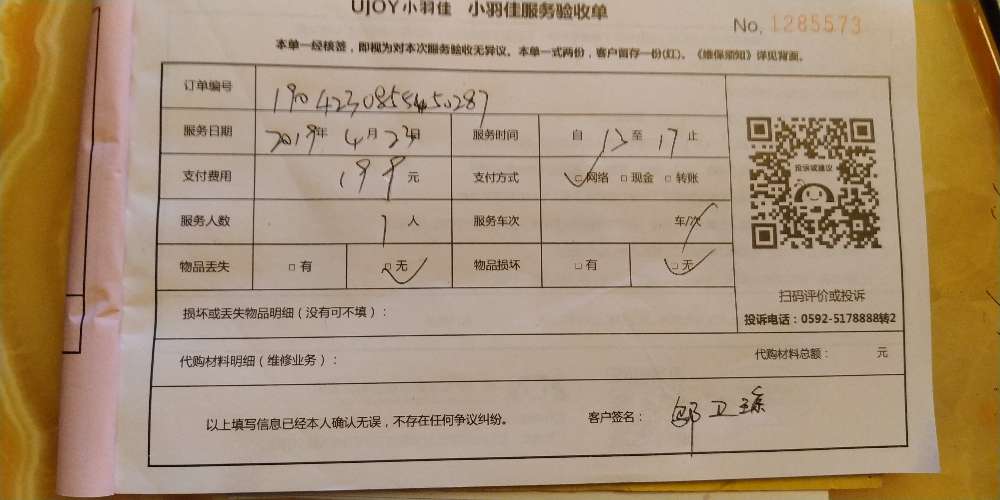 UJOY小羽佳 小羽佳服务验收单
No. 1285573
本单一经核签，即视为对本次服务验收无异议。本单一式两份，客户留存一份(红)。《维保须知》详见背面。
订单编号 190423085545​0287
服务日期 2019年4月23日 服务时间 自13至17止
支付费用 199元 支付方式 ☑网络 □现金 □转账
服务人数 1人 服务车次 / 车/次
物品丢失 □有 ☑无 物品损坏 □有 ☑无
投诉或建议
扫码评价或投诉
投诉电话：0592-5178888转2
损坏或丢失物品明细（没有可不填）：
代购材料明细（维修业务）： 代购材料总额： 元
以上填写信息已经本人确认无误，不存在任何争议纠纷。 客户签名： 卫